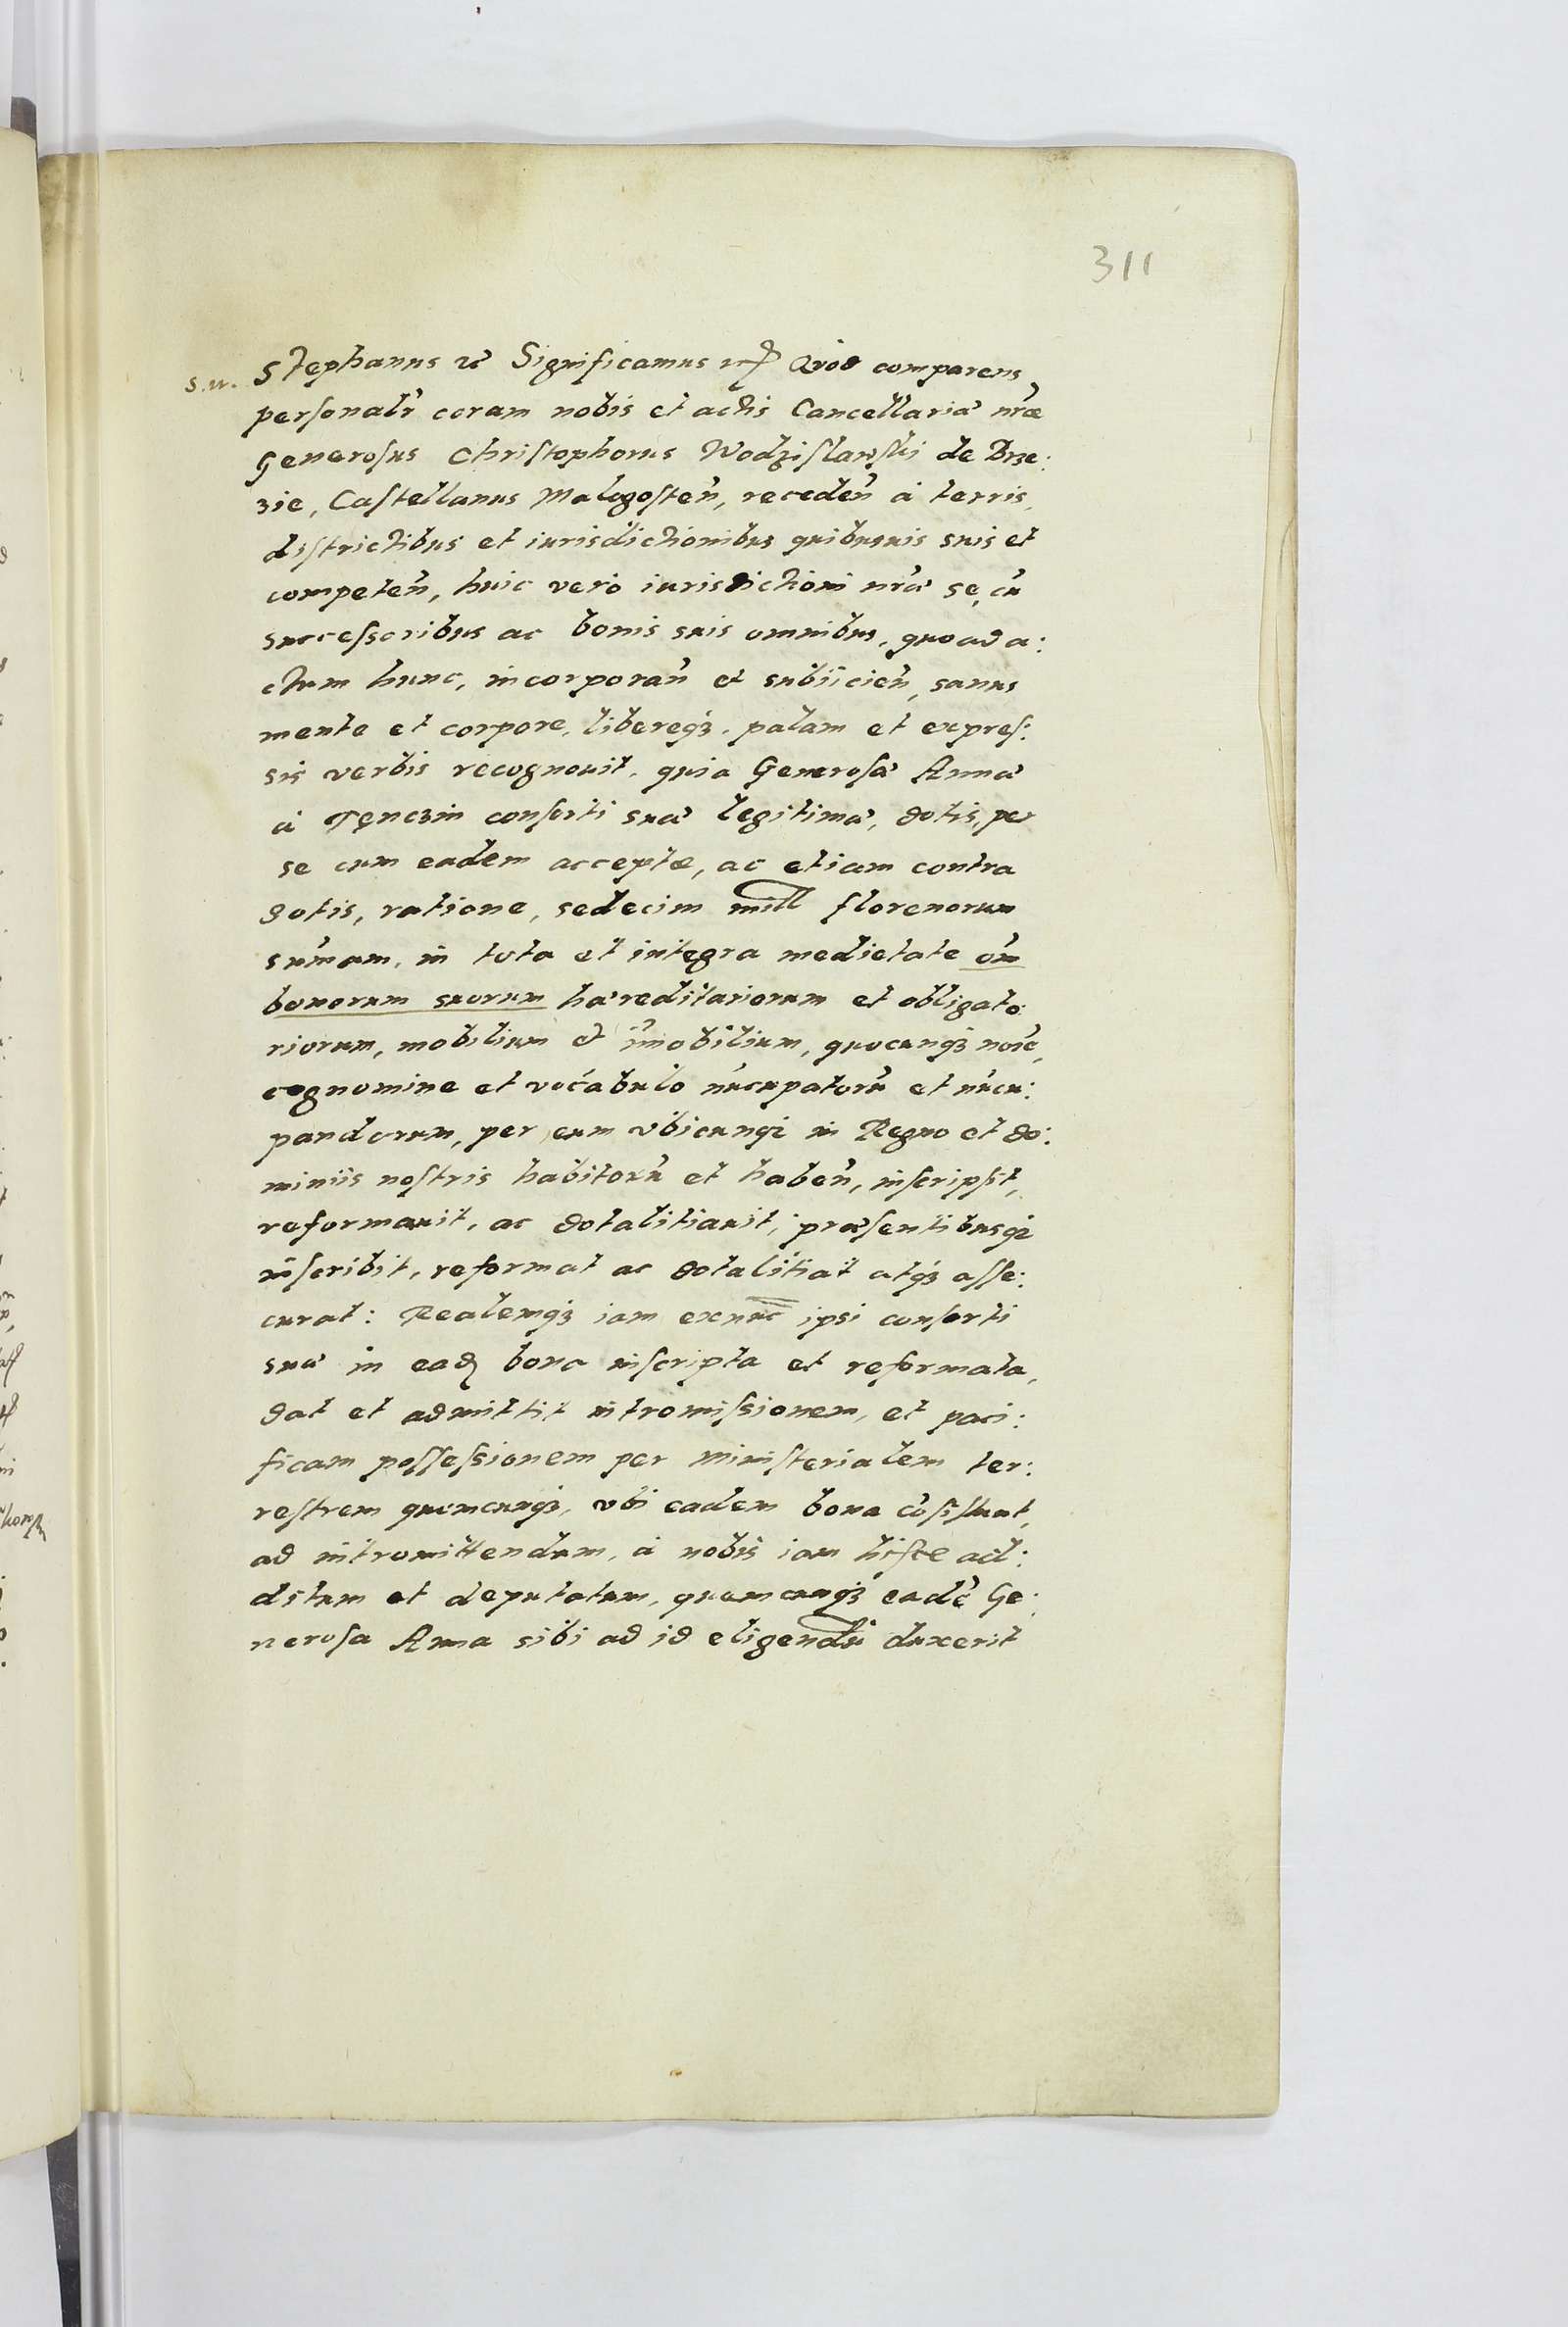 311
s.n. Stephanus etc Significamus etc Quod comparens
personalr̃ coram nobis et actis Cancellariæ nr̃æ
Generosus Christophorus Wodzislawski de Brze:
zie, Castellanus Malogosteñ, recedeñ à terris,
districtibus et iurisdictionibus quibusuis suis et
competeñ, huic vero iurisdictioni nr̃æ se, cũ
successoribus ac bonis suis omnibus, quoad a:
ctum hunc, incorporañ et subijcieñ, sanus
mente et corpore, libereq3, palam et expres:
sis verbis recognouit, quia Generosæ Annæ
à Tęnczin consorti suæ legitimæ, dotis, per
se cum eadem acceptæ, ac etiam contra
dotis, ratione, sedecim mill florenorum
sum̃am, in tota et integra medietate om̃
bonorum suorum hæreditariorum et obligato:
riorum, mobilium et im̃obilium, quocunq3 noĩe,
cognomine et vocabulo nũcupatorũ et nũcu:
pandorum, per eum vbicunq3 in Regno et do:
minijs nostris habitorũ et habeñ, inscripsit,
reformauit, ac dotalitiauit, præsentibusq3
inscribit, reformat ac dotalitiat atq3 asse:
curat: Realemq3 iam exnũc ipsi consorti
suæ in ead bona inscripta et reformata,
dat et admittit intromissionem, et paci:
ficam possessionem per ministerialem ter:
restrem quemcunq3, vbi eadem bona cõsistunt,
ad intromittendum, à nobis iam hisce ad:
ditum et deputatum, quemcunq3 eadẽ Ge:
nerosa Anna sibi ad id eligendũ duxerit